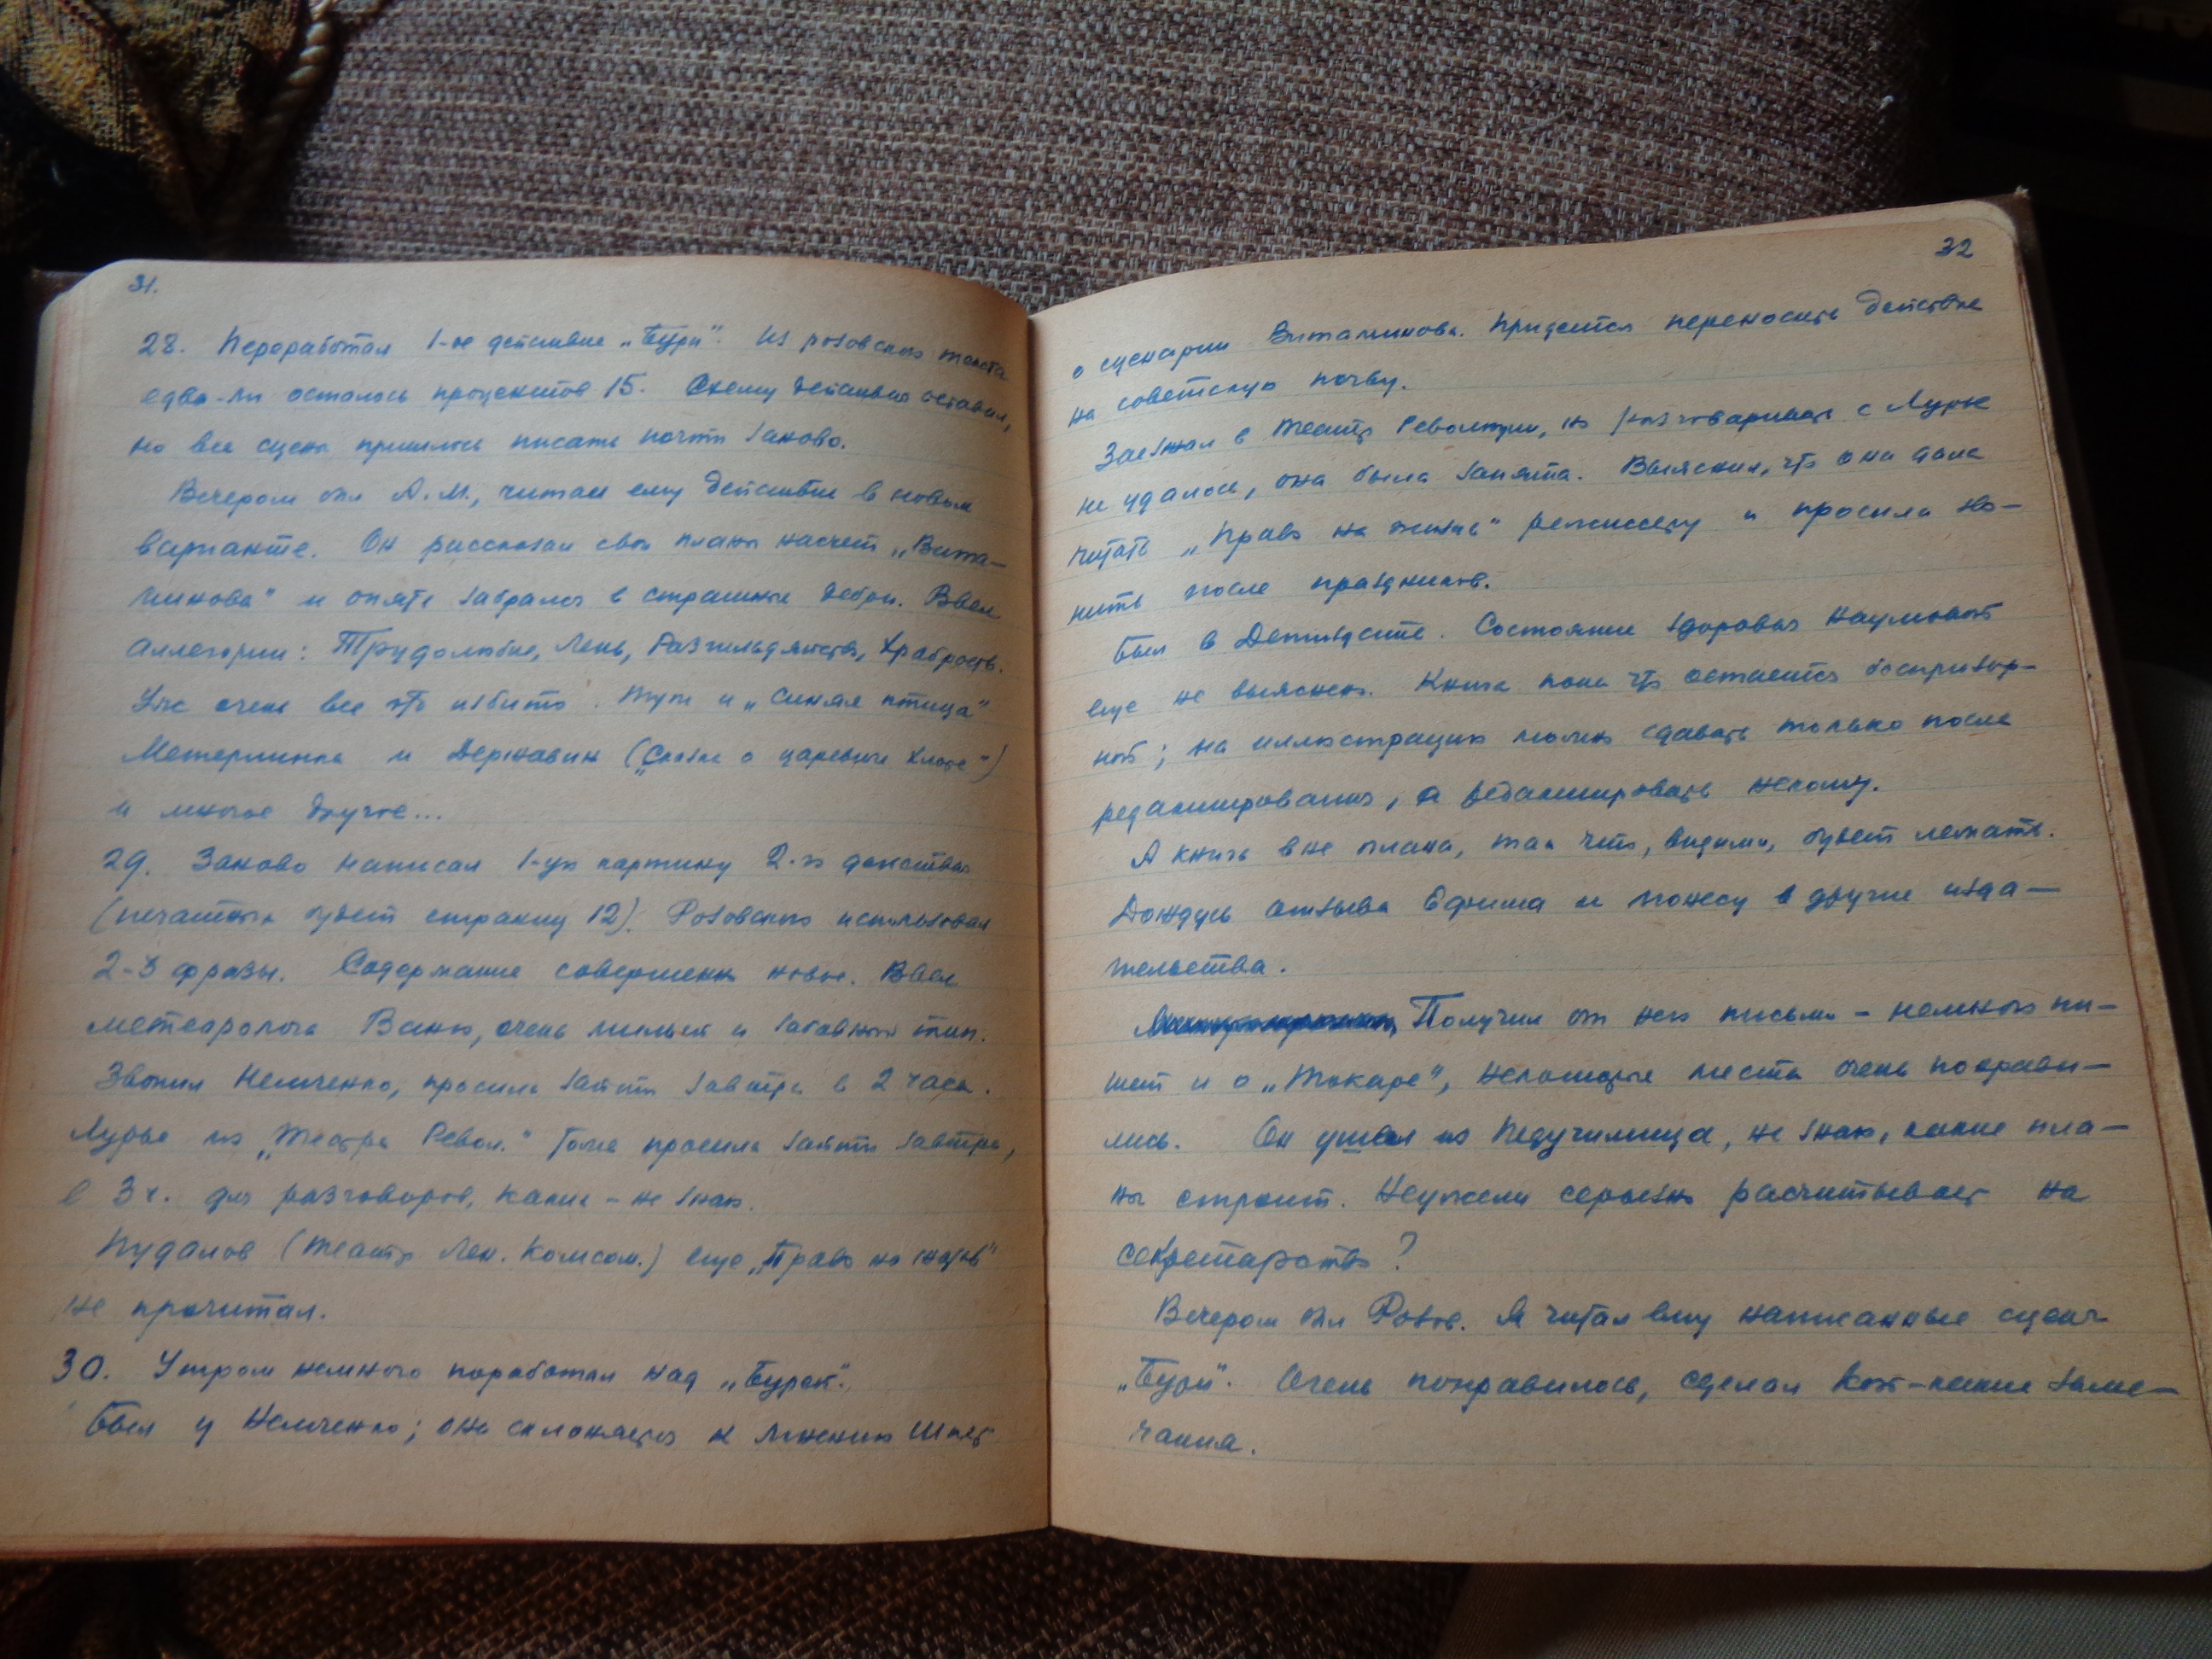 31.
28. Переработал 1-ое действие „Бури". Из розовского текста
едва-ли осталось процентов 15. Схему действия оставил,
но все сцены пришлось писать почти заново.
Вечером был А.М., читал ему действие в новом
варианте. Он рассказал свои планы насчет „Вита-
минова" и опять забрался в страшные дебри. Ввел
аллегории: Трудолюбие, Лень, Разгильдяйство, Храбрость.
Уж очень все это избито. Тут и „Синяя птица"
Метерлинка и Державин („Сказка о царевиче Хлоре")
и многое другое...
29. Заново написал 1-ую картину 2-го действия
(печатных будет страниц 12). Розовского использовал
2-3 фразы. Содержание совершенно новое. Ввел
метеоролога Ваню, очень милый и забавный тип.
Звонил Немченко, просила зайти завтра в 2 часа.
Лурье из „Театра Револ." тоже просила зайти завтра,
в 3 ч. для разговоров, каких - не знаю.
Пудалов (Театр Лен. Комсом.) еще „Право на жизнь"
не прочитал.
30. Утром немного поработал над „Бурей".
Был у Немченко; она склоняется к мнению Шпет
32
о сценарии Витаминова. Придется переносить действие
на советскую почву.
Заезжал в Театр Революции, но разговаривать с Лурье
не удалось, она была занята. Выяснил, что она дала
читать „Право на жизнь" режиссеру и просила зво-
нить после праздников.
Был в Детиздате. Состояние здоровья Наумовой
еще не выяснено. Книга пока что остается беспризор-
ной; на иллюстрацию можно сдавать только после
редактирования, а редактировать некому.
А книга вне плана, так что, видимо, будет лежать.
Дождусь отзыва Ефима и понесу в другие изда-
тельства.
Получил от него письмо - немного пи-
шет и о „Токаре", некоторые места очень понрави-
лись. Он ушел из Педучилища, не знаю, какие пла-
ны строит. Неужели серьезно рассчитывает на
секретарство?
Вечером был Розов. Я читал ему написанные сцены
„Бури". Очень понравилось, сделал кое-какие заме-
чания.